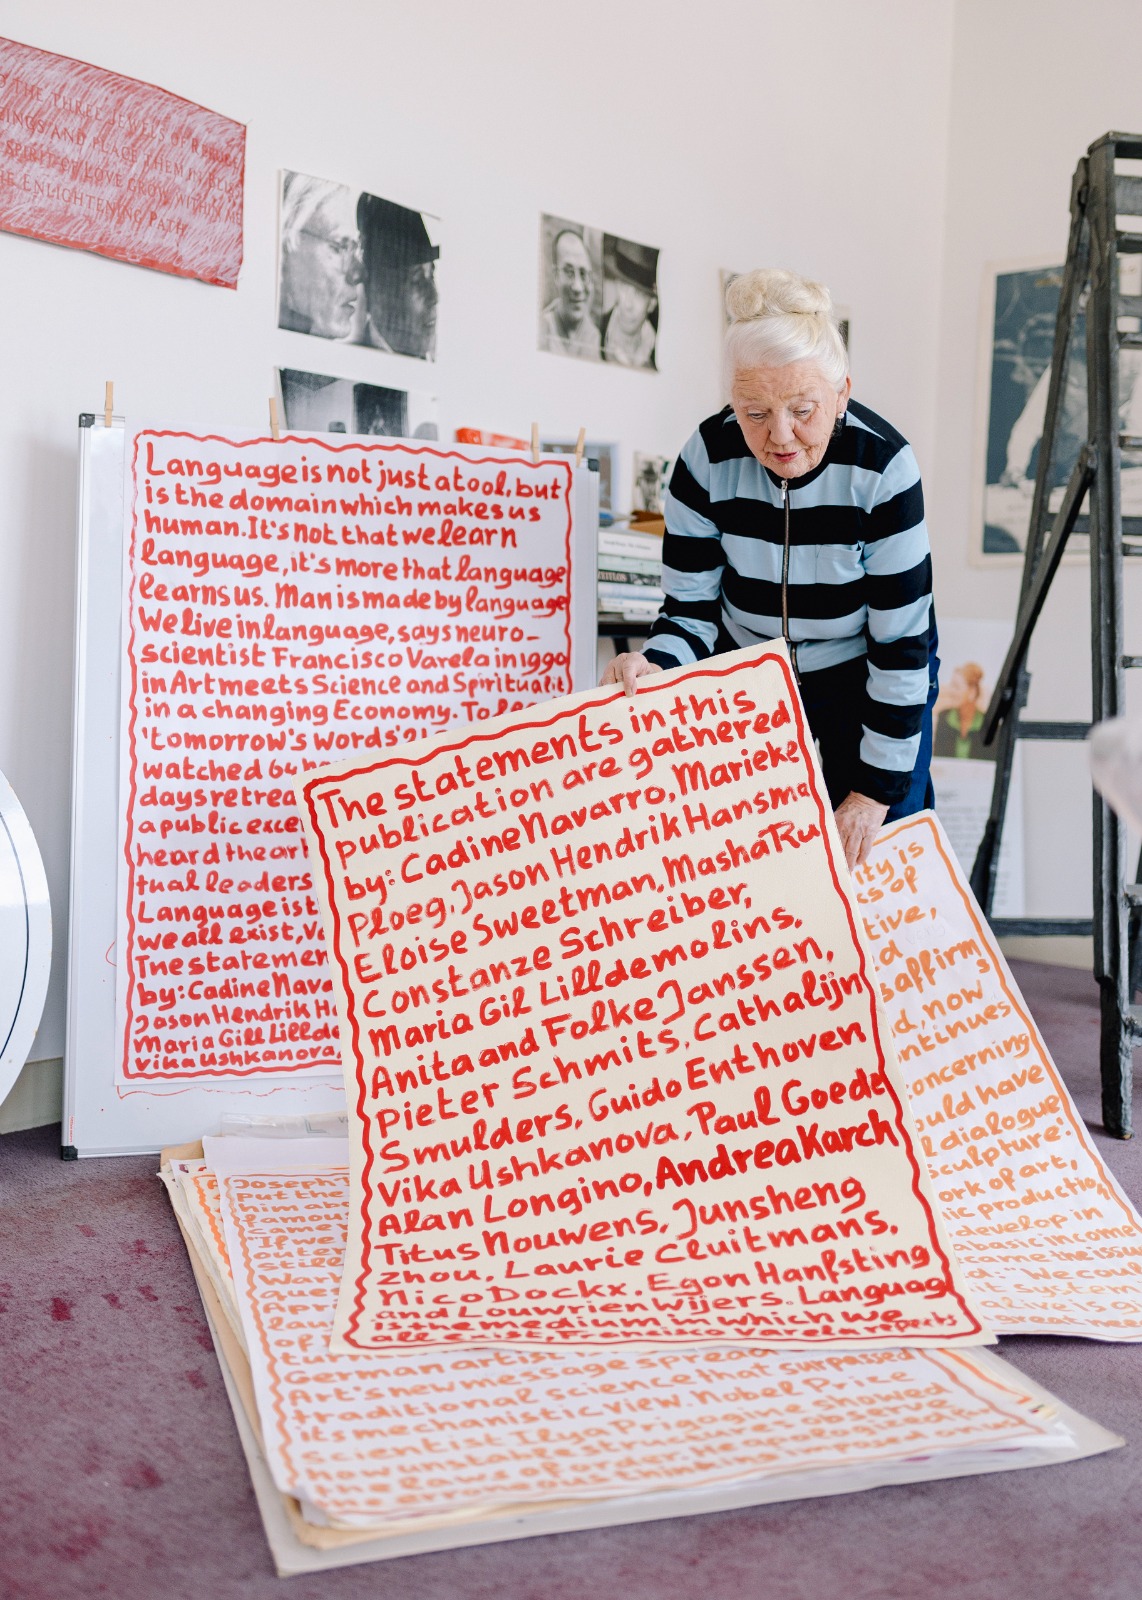 THE THREE JEWELS OF
AND PLACE THEM IN
SPIRIT OF LOVE GROW WITHIN ME
ENLIGHTENING PATH
Language is not just a tool, but
is the domain which makes us
human. It's not that we learn
language, it's more that language
learns us. Man is made by language
We live in language, says neuro-
scientist Francisco Varela in 1990
in Art meets Science and Spiritualit
in a changing Economy. To
'tomorrow's words'
watched 64
days retrea
a public exce
heard the art
tual leaders
Language is t
we all exist, Va
The statemen
by: Cadine Nava
Jason Hendrik Ha
Maria Gill Lillde
Vika Ushkanova,
The statements in this
publication are gathered
by: Cadine Navarro, Marieke
Ploeg, Jason Hendrik Hansma
Eloise Sweetman, Masha Ru
Constanze Schreiber,
Maria Gil Lilldemolins,
Anita and Folke Janssen,
Pieter Schmits, Cathalijn
Smulders, Guido Enthoven
Vika Ushkanova, Paul Goede
Alan Longino, Andrea Karch
Titus Nouwens, Junsheng
Zhou, Laurie Cluitmans,
Nico Dockx, Egon Hanfsting
and Louwrien Wijers. Languag
is the medium in which we
all exist, Francisco Varela repeats
ity is
ks of
tive,
d
s affirm
d, now
ntinues
oncerning
ould have
l dialogue
sculpture'.
ork of art,
ic production
develop in
a basic income
came the issue
d: "We coul
t system
alive is g
great nee
Joseph
put the
him ab
famou
camer
If we
outer
still
Warh
que
Apri
lau
of
turn
German artist
Art's new message spread
traditional science that surpassed
its mechanistic view. Nobel Price
scientist Ilya Prigogine showed
how unstable structures observe
the laws of order. He apologized for
the erroneous thinking imposed on